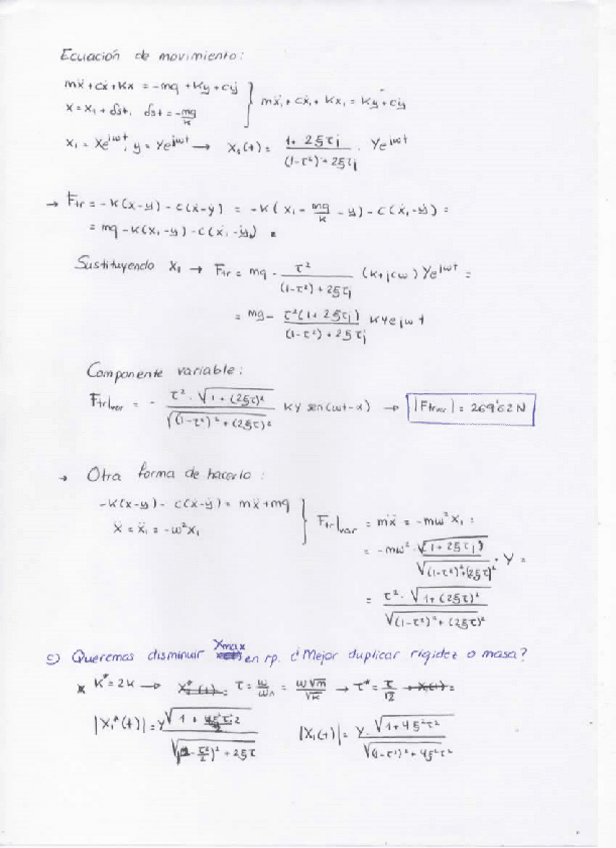 Ecuación de movimiento:
mẍ + cẋ + Kx = -mg + Ky + cẏ } mẍ₁ + cẋ₁ + Kx₁ = Ky + cẏ
x = x₁ + δst, δst = -mg/K
x₁ = Xe^{jωt}, y = Ye^{jωt} → x₁(t) = (1 + 2ξτj)/((1-τ²) + 2ξτj) · Ye^{jωt}
→ Ftr = -K(x-y) - c(ẋ-ẏ) = -K(x₁ - mg/K - y) - c(ẋ₁-ẏ) =
= mg - K(x₁-y) - c(ẋ₁-ẏ)
Sustituyendo x₁ → Ftr = mg - τ²/((1-τ²) + 2ξτj) (K+jcω) Ye^{jωt} =
= mg - τ²(1 + 2ξτj)/((1-τ²) + 2ξτj) KYe^{jωt}
Componente variable:
Ftr|var = - τ² · √(1 + (2ξτ)²)/√((1-τ²)² + (2ξτ)²) KY sen(ωt-α) → |Ftrvar| = 269'62 N
→ Otra forma de hacerlo:
-K(x-y) - c(ẋ-ẏ) = mẍ + mg } Ftr|var = mẍ = -mω²x₁ =
ẍ = ẍ₁ = -ω²x₁
= -mω² · √(1 + 2ξτj)/√((1-τ²)² + (2ξτ)²) · Y =
= τ² · √(1 + (2ξτ)²)/√((1-τ²)² + (2ξτ)²)
c) Queremos disminuir Xmax en rp. ¿Mejor duplicar rigidez o masa?
K* = 2K → τ = ω/ωn = ω√m/√K → τ* = τ/√2
|X₁*(t)| = Y √(1 + 4ξ²τ²/2)/√((1 - τ²/2)² + 2ξτ) |X₁(t)| = Y · √(1 + 4ξ²τ²)/√((1-τ²)² + 4ξ²τ²)